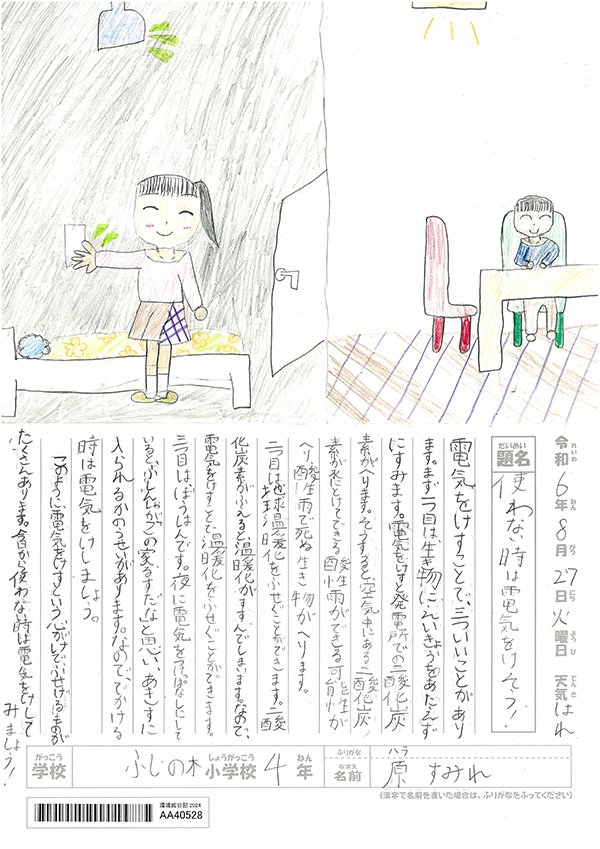 令和6年8月27日火曜日 天気 はれ
だいめい
題名 使わない時は電気をけそう!
電気をけすことで、三ついいことがあり
ます。まず一つ目は生き物にえいきょうをあたえず
にすみます。電気をけすと発電所での二酸化炭
素がへります。そうすると空気中にある二酸化炭
素が水にとけてできる酸性雨ができる可能性が
へり、酸性雨で死ぬ生き物がへります。
二つ目は地球温暖化をふせぐことができます。二酸
化炭素がふえると温暖化がすすんでしまいます。なので、
電気をけすことで温暖化をふせぐことができます。
三つ目はぼうはんです。夜に電気をつけっぱなしにして
いるとふしんしゃがこの家るすだなと思い、あきすに
入られるかのうせいがあります。なので、でかける
時は電気をけしましょう。
このように電気をけすという心がけでふせげるものが
たくさんあります。今から使わない時は電気をけして
みましょう!
がっこう しょうがっこう ねん ふりがな ハラ
学校 ふじの木 小学校 4年 なまえ 名前 原 すみれ
(漢字で名前を書いた場合は、ふりがなをふってください)
環境絵日記 2024
AA40528